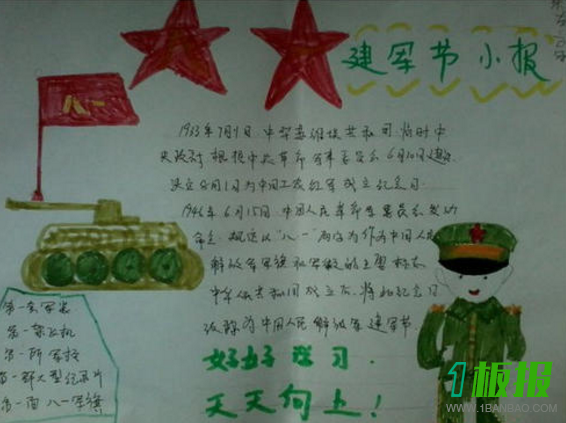 建军节小报
八一
1933年7月1日,中华苏维埃共和国临时中
央政府根据中央革命军事委员会6月30日建议
决定8月1日为中国工农红军成立纪念日.
1946年6月15日,中国人民革命军委员会发动
命令,规定以"八一"两字为作为中国人民
解放军军旗和军徽的主要标志
中华人民共和国成立后,将此纪念日
改称为中国人民解放军建军节.
好好学习.
天天向上!
第一套军装
第一架飞机
第一所军校
第一部大型纪录片
第一面八一军旗
1板报
WWW.1BANBAO.COM